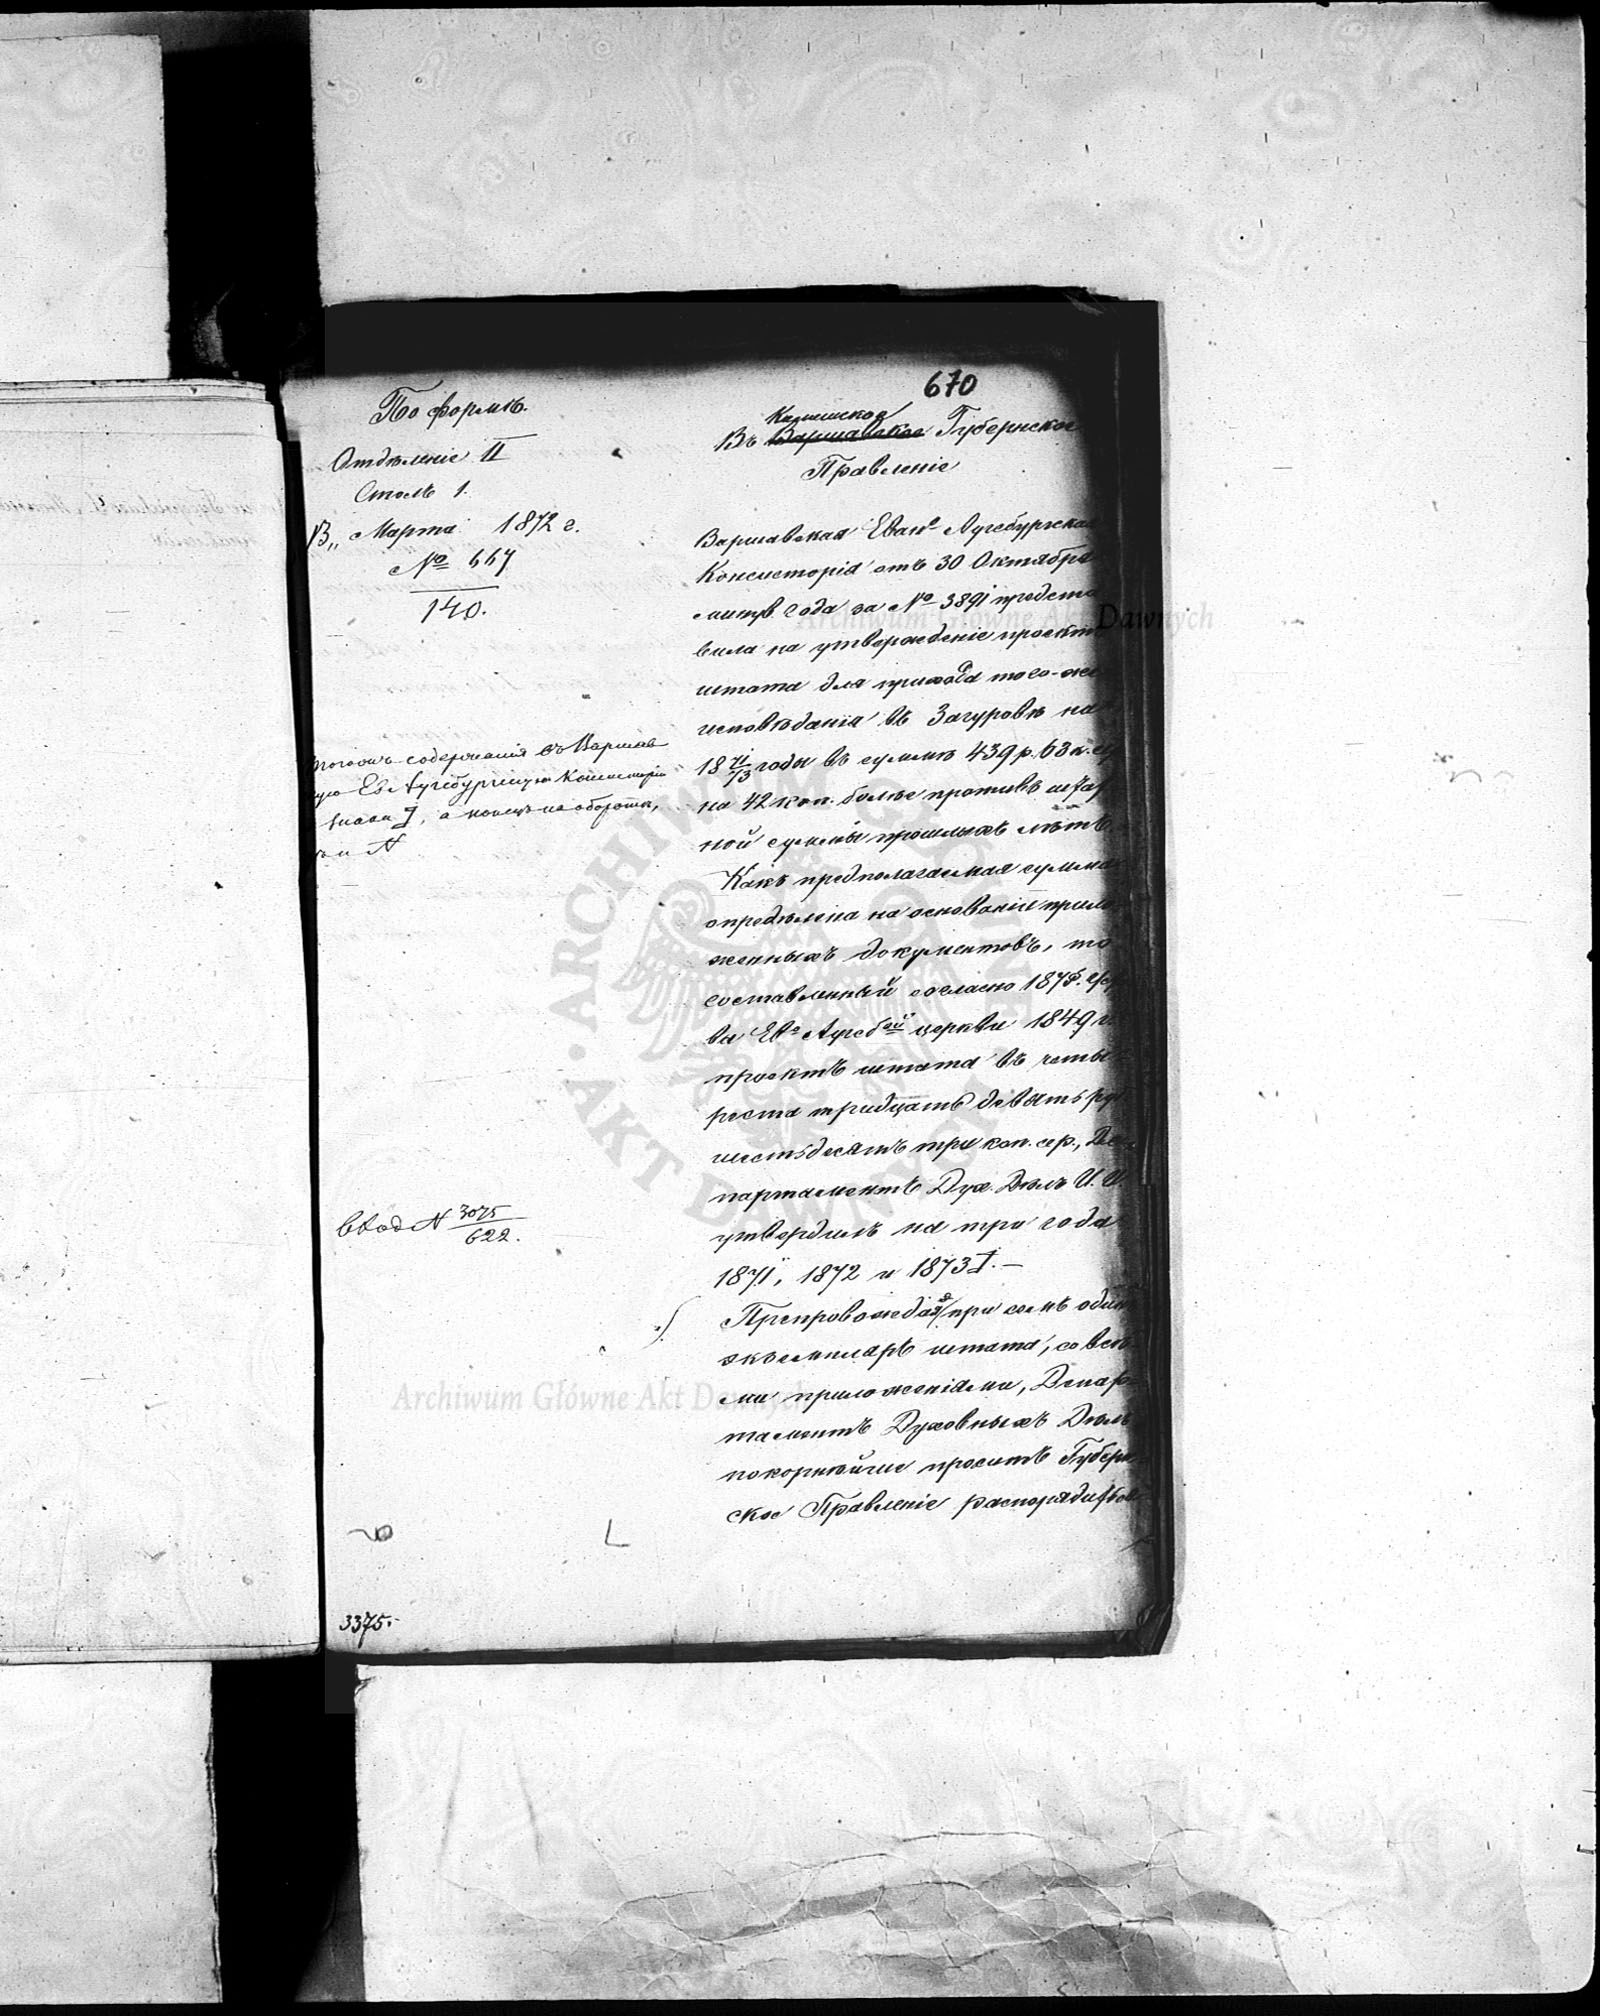 670
По формѣ.
Отдѣленіе II
Столъ 1.
13„ Марта 1872 г.
№ 667
140.
содержанія въ Варшав
Ев Аугсбургскую Консисторію
а конецъ на оборотѣ,
N
вход N 3075
622.
3375.
Калишское
Въ Варшавское Губернское
Правленіе
Варшавская Еванг Аугсбургская
Консисторія отъ 30 Октября
минув. года за № 3891 предста
вила на утвержденіе проектъ
штата для прихода того-же
исповѣданія въ Загуровѣ на
1871/73 годы въ суммѣ 439 р. 63 к.
на 42 коп. болѣе противъ штат
ной суммы прошлыхъ лѣтъ.
Какъ предполагаемая сумма
опредѣлена на основаніи прило
женныхъ документовъ, то
составленный согласно 187
ва Ев Аугсбой церкви 1849 г
проектъ штата въ четы
реста тридцать девять руб
шестьдесятъ три коп. сер., Де
партаментъ Дух. Дѣлъ И. И.
утвердилъ на три года
1871, 1872 и 1873 г. —
Препровождая при семъ одинъ
экземпляръ штата, со всѣ
ми приложеніями, Депар
таментъ Духовныхъ Дѣлъ
покорнѣйше проситъ Губерн
ское Правленіе распорядиться
Archiwum Główne Akt Dawnych
Archiwum Główne Akt Dawnych
ARCHIWUM GŁÓWNE AKT DAWNYCH